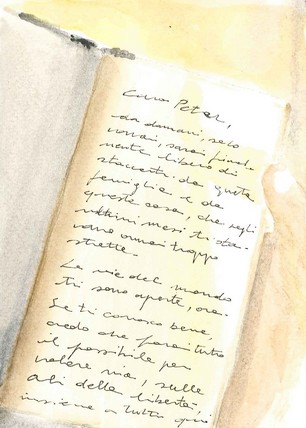 Caro Peter,
da domani, se lo
vorrai, sarai final-
mente libero di
staccarti da questa
famiglia e da
queste cose, che negli
ultimi mesi ti sta-
vano ormai troppo
strette.
Le vie del mondo
ti sono aperte, ora.
Se ti conosco bene
credo che farai tutto
il possibile per
volare via, sulle
ali della libertà,
insieme a tutti